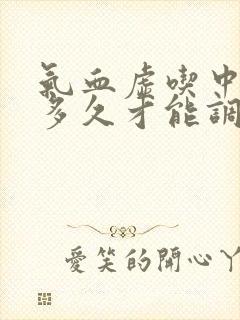 氣血虛喫中
多久才能調
愛笑的開心丫